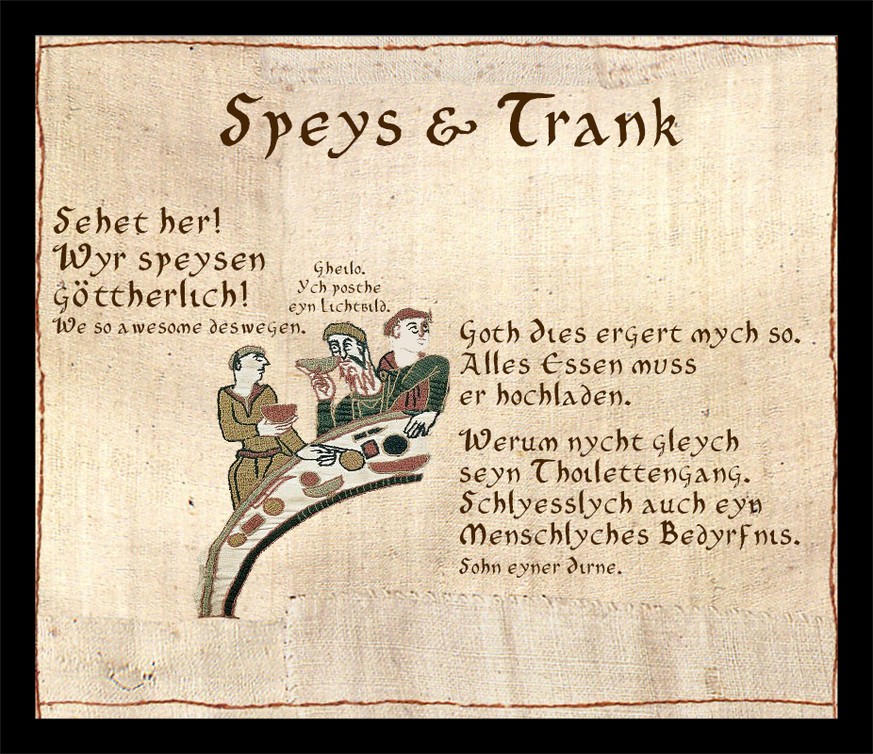 Speys & Trank
Sehet her!
Wyr speysen
göttherlich!
We so awesome deswegen.
Gheilo.
Ych posthe
eyn Lichtbild.
Goth dies ergert mych so.
Alles Essen muss
er hochladen.
Werum nycht gleych
seyn Thoilettengang.
Schlyesslych auch eyn
Menschlyches Bedyrfnis.
Sohn eyner Dirne.